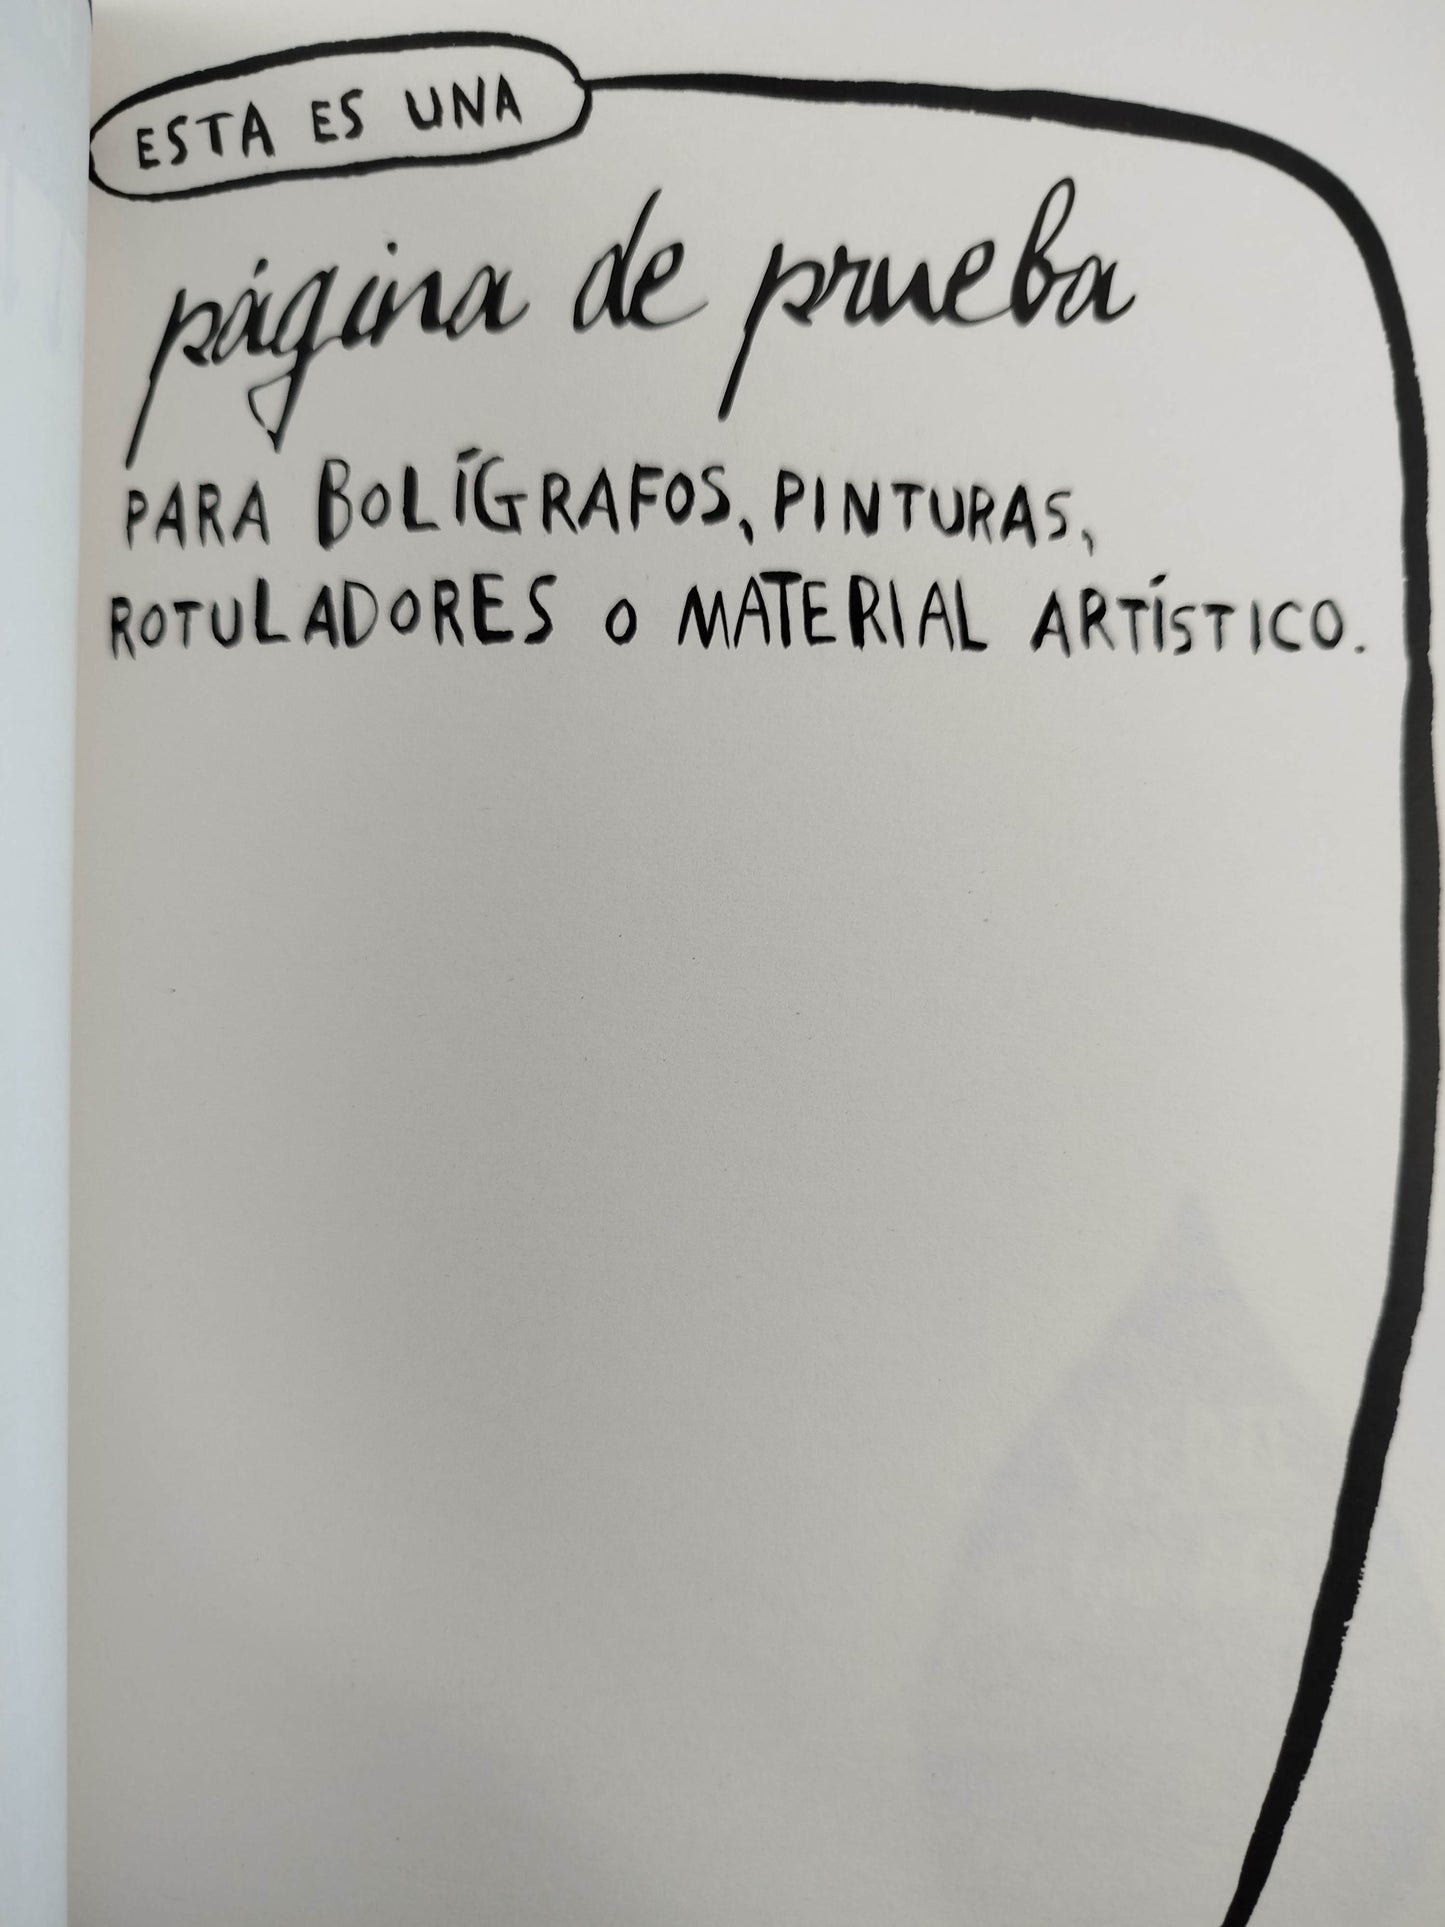 ESTA ES UNA
página de prueba
PARA BOLÍGRAFOS, PINTURAS,
ROTULADORES O MATERIAL ARTÍSTICO.